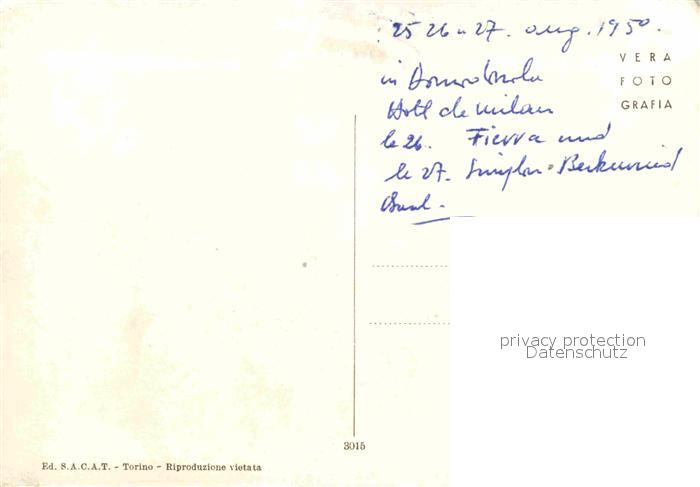 25 26 u 27. aug. 1950.
VERA
FOTO
GRAFIA
in Domodossola
Hotel de Milan
le 26. und
le 27. Simplon-
Basel.
3015
Ed. S.A.C.A.T. - Torino - Riproduzione vietata
privacy protection
Datenschutz